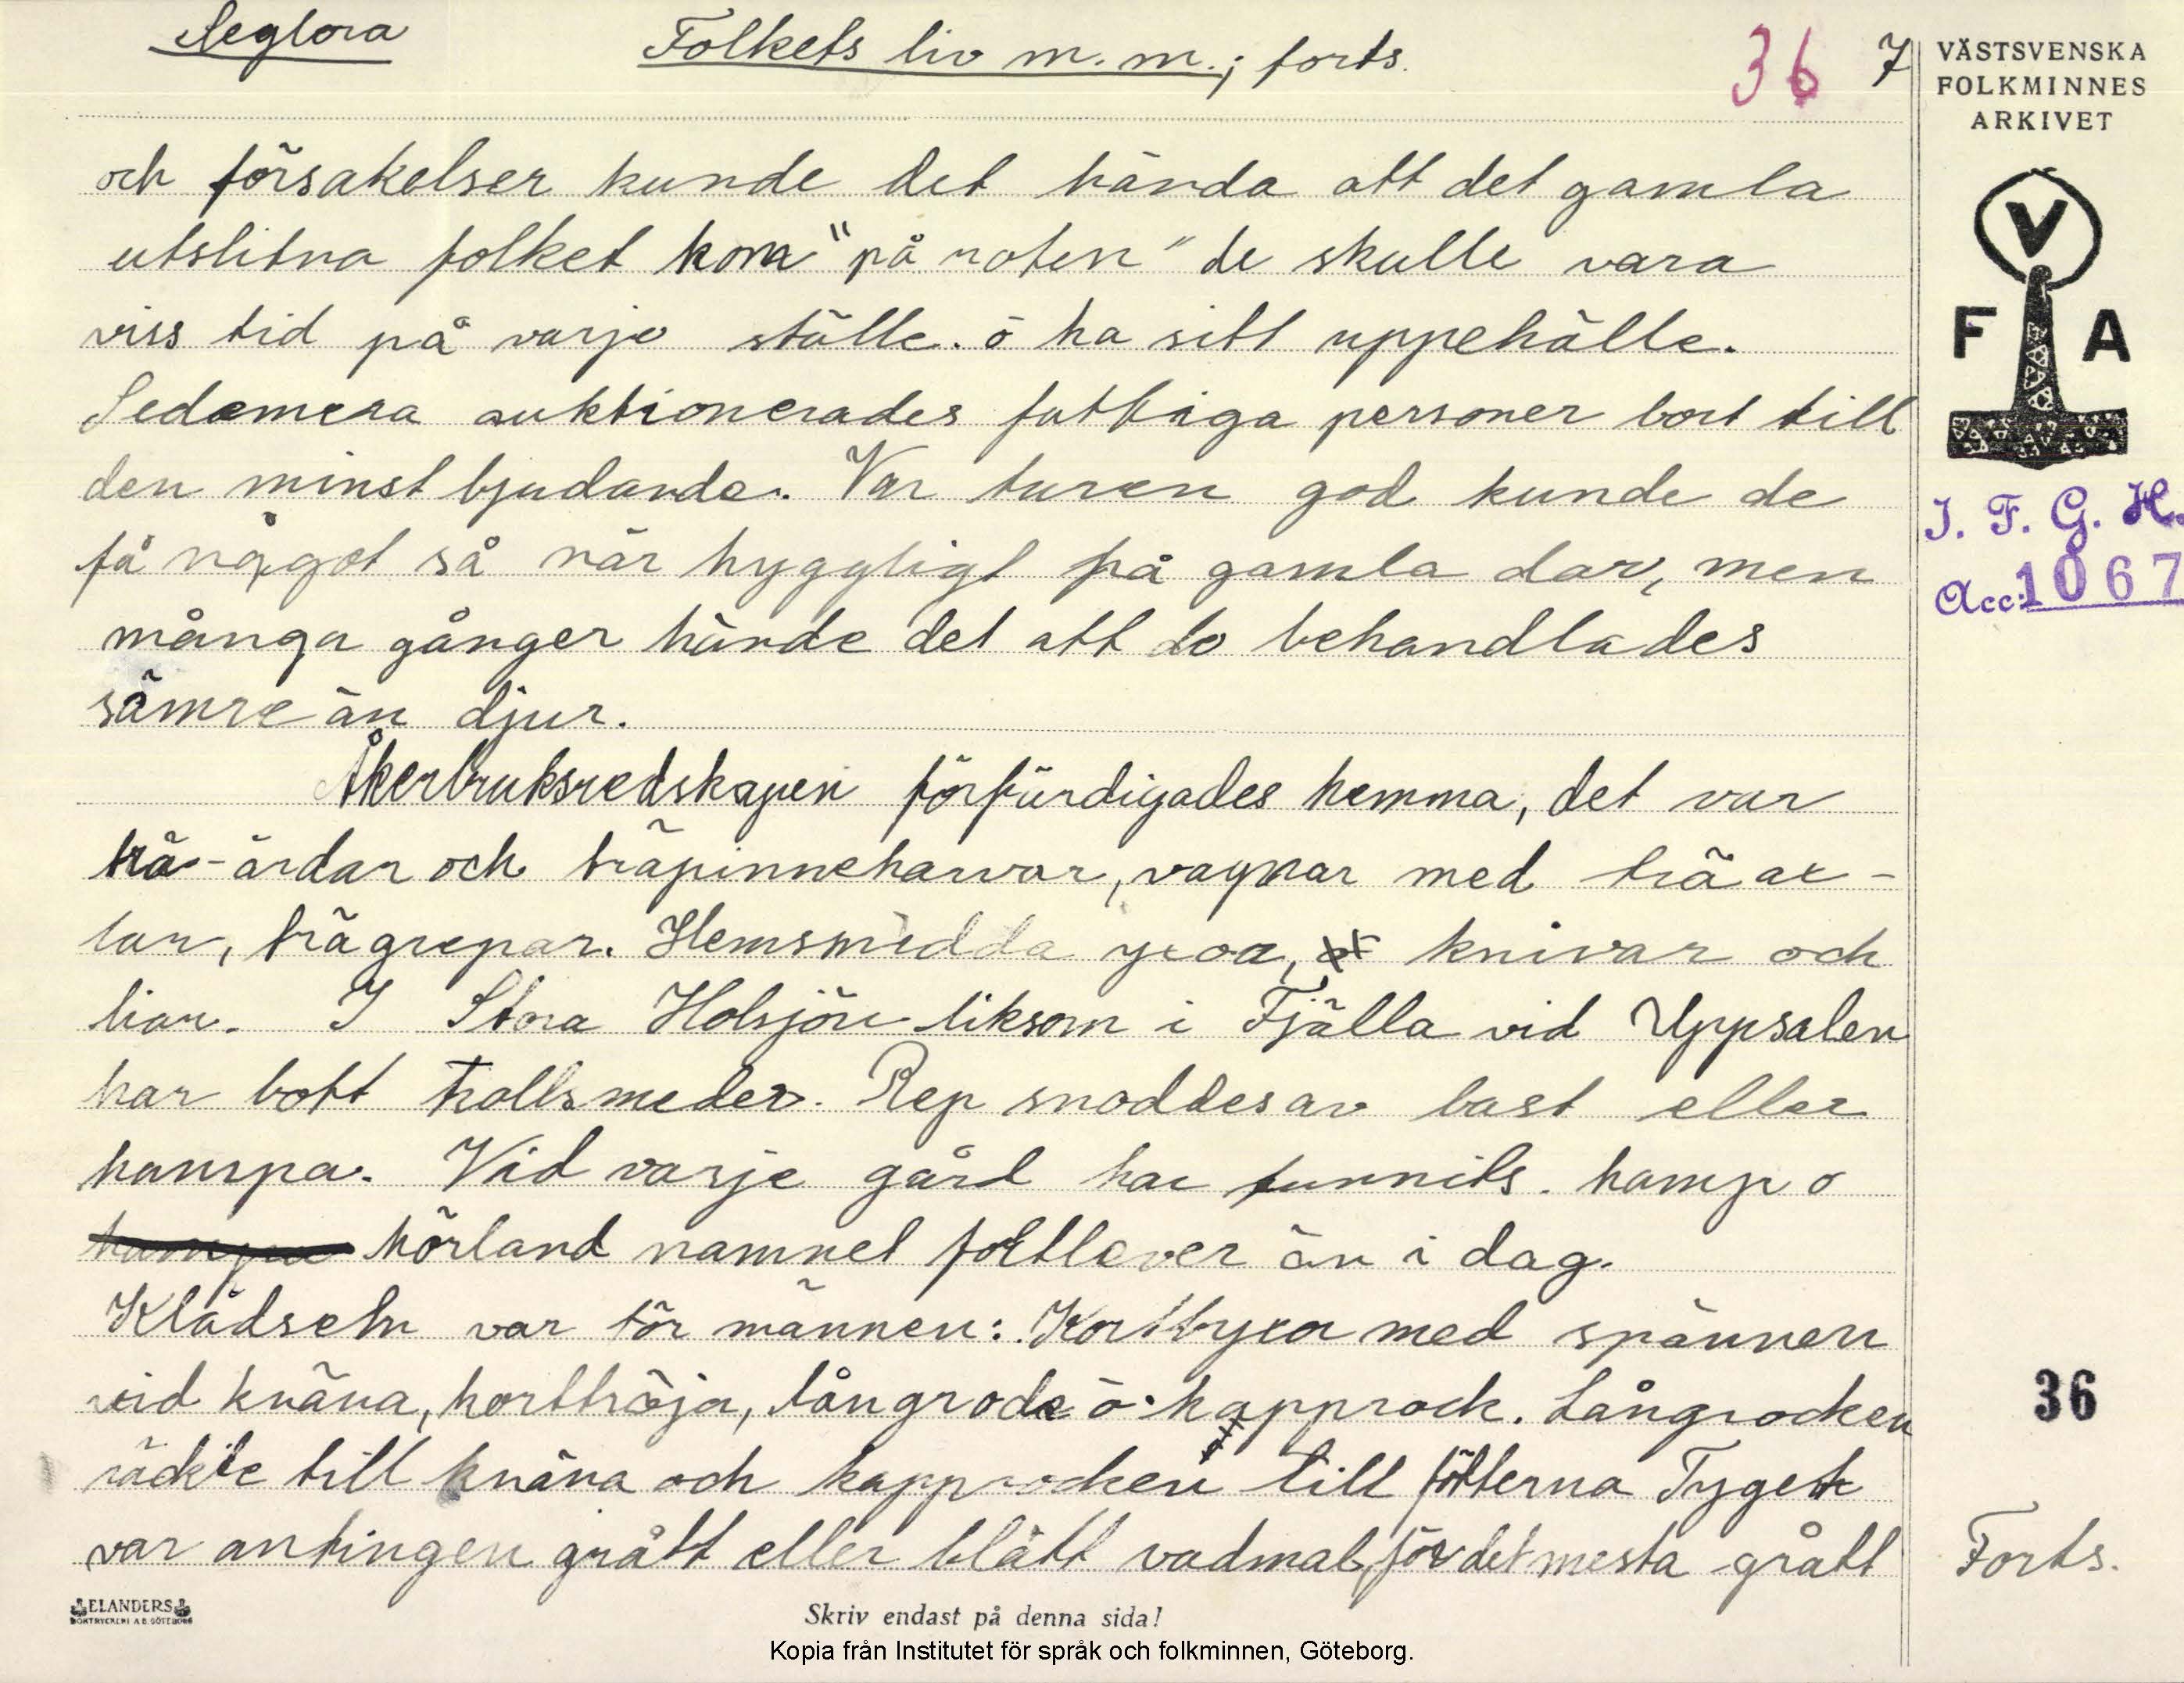 Seglora
Folkets liv m.m.; forts.
36 7
VÄSTSVENSKA
FOLKMINNES
ARKIVET
och försakelser kunde det hända att det gamla
utslitna folket kom "på roten" de skulle vara
viss tid på varje ställe. ö ha sitt uppehälle.
Sedemera auktionerades fattiga personer bort till
den minst bjudande. Var turen god kunde de
få något så när hyggligt på gamla dar, men
många gånger hände det att de behandlades
sämre än djur.
Åkerbruksredskapen förfärdigades hemma, det var
trä-årdar och träpinneharvar, vagnar med träax-
lar, trägrepar. Hemsmidda yxor, knivar och
liar. I Stora Holsjön liksom i Fjälla vid Uppsalen
har bott trollsmeder. Rep snoddes av bast eller
hampa. Vid varje gård har funnits. hamp o
hampa hörland namnet fortlever än i dag.
Klädseln var för männen: Kortbyxor med spännen
vid knäna, korttröja, långrock ö. kapprock. Långrocken
räckte till knäna och kapprocken till fötterna Tyget
var antingen grått eller blått vadmal, för det mesta grått
V
F A
I. F. G. H.
Acc: 1067
36
Forts.
ELANDERS
BOKTRYCKERI A.B. GÖTEBORG
Skriv endast på denna sida!
Kopia från Institutet för språk och folkminnen, Göteborg.